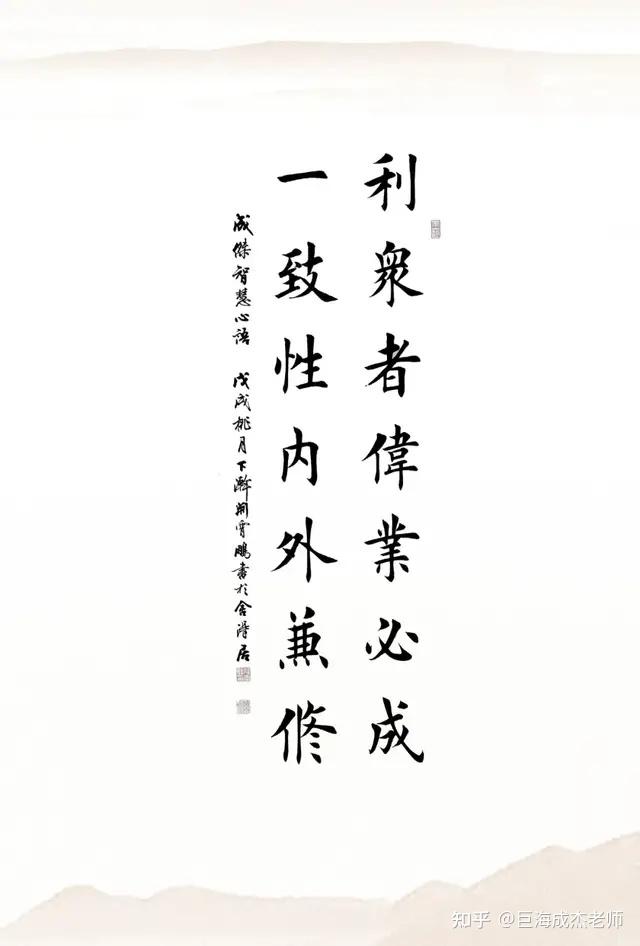 利衆者偉業必成
一致性內外兼修
成傑智慧心語 戊戌桃月下澣開霄鵬書於舍得居
知乎 @巨海成杰老师